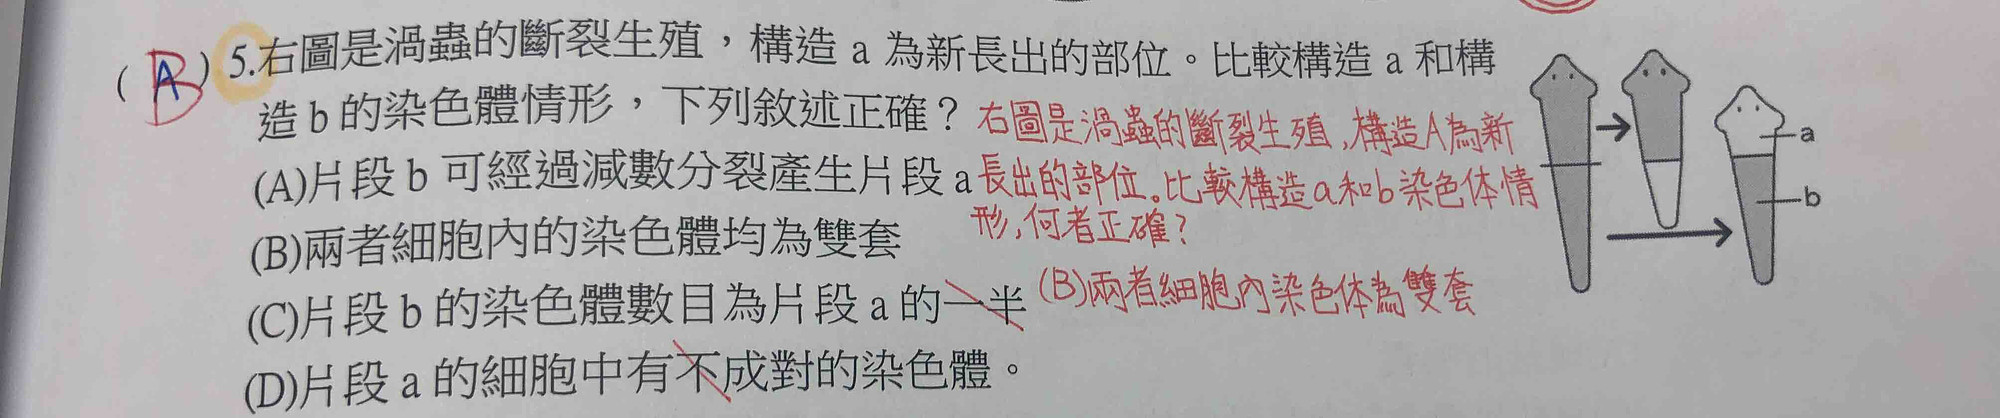 ( A B ) 5.右圖是渦蟲的斷裂生殖，構造 a 為新長出的部位。比較構造 a 和構
造 b 的染色體情形，下列敘述正確？
(A)片段 b 可經過減數分裂產生片段 a
(B)兩者細胞內的染色體均為雙套
(C)片段 b 的染色體數目為片段 a 的一半
(D)片段 a 的細胞中有不成對的染色體。
右圖是渦蟲的斷裂生殖,構造A為新
長出的部位。比較構造a和b染色体情
形,何者正確?
(B)兩者細胞內染色体為雙套
a
b